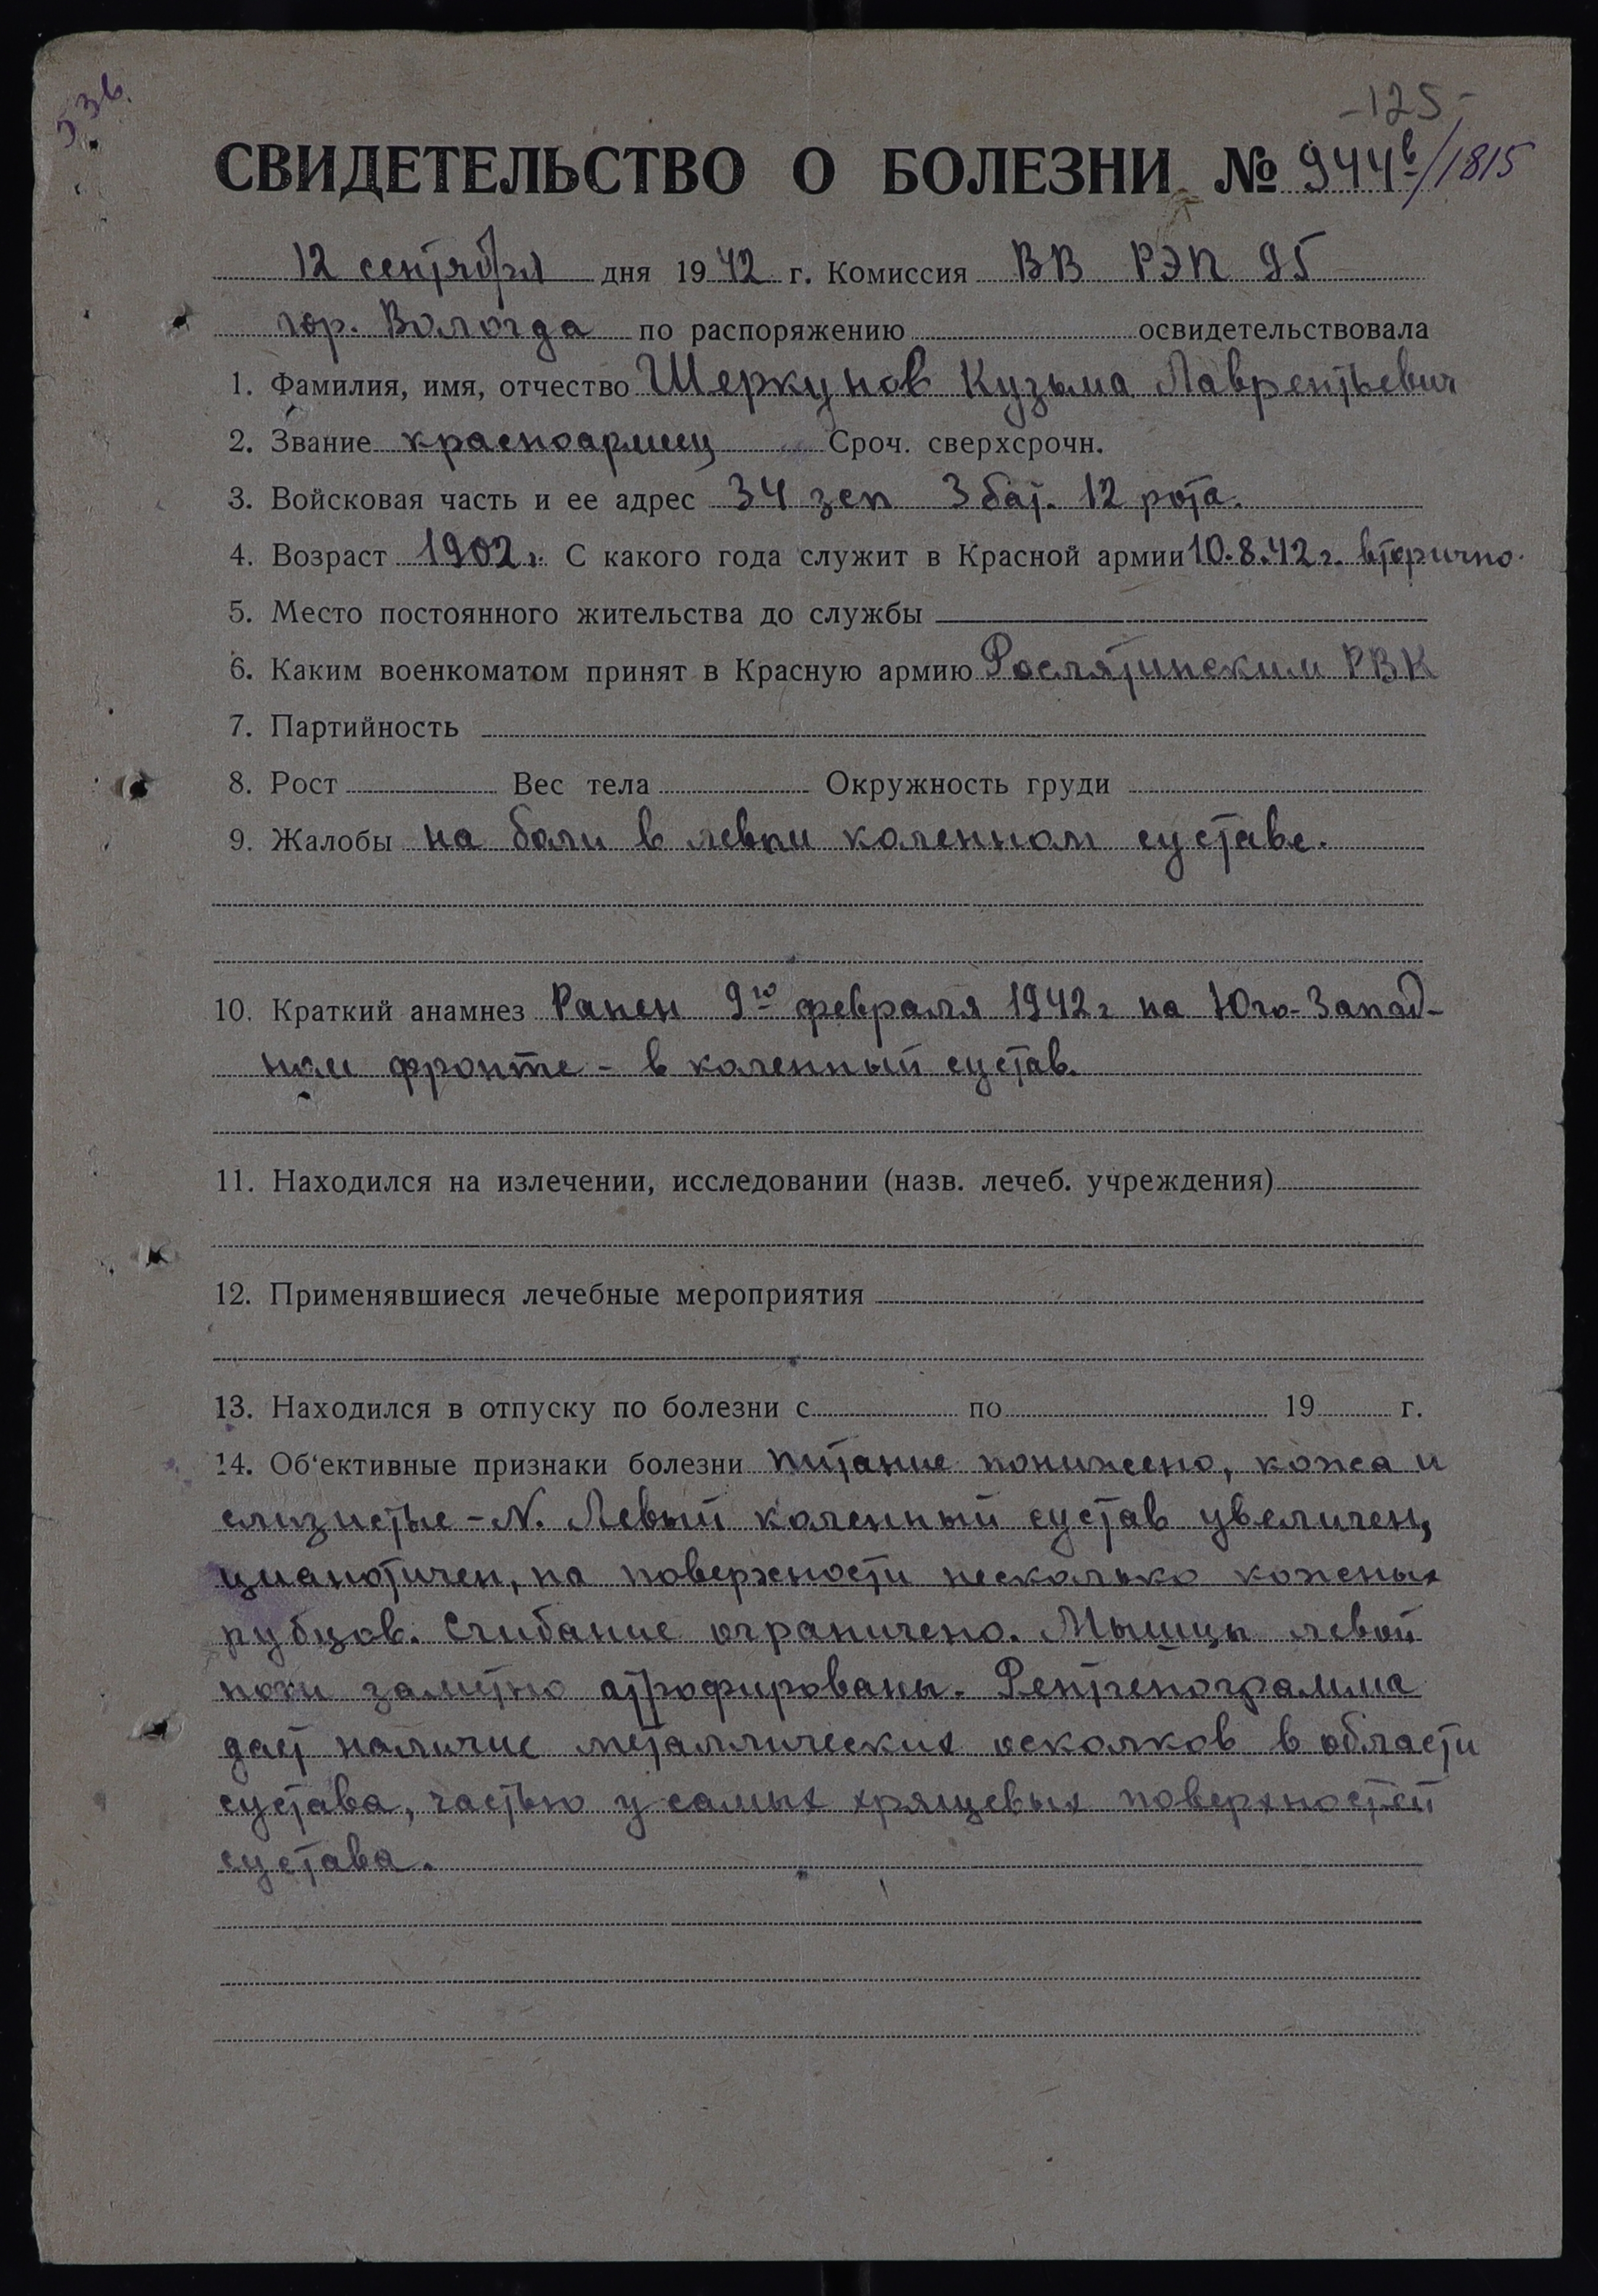 536.
-125-
СВИДЕТЕЛЬСТВО О БОЛЕЗНИ № 944в/1815
12 сентября дня 1942 г. Комиссия ВВ РЭП 95
гор. Вологда по распоряжению освидетельствовала
1. Фамилия, имя, отчество Шеркунов Кузьма Лаврентьевич
2. Звание красноармеец Сроч. сверхсрочн.
3. Войсковая часть и ее адрес 34 зсп 3 бат. 12 рота.
4. Возраст 1902 г. С какого года служит в Красной армии 10.8.42 г. вторично.
5. Место постоянного жительства до службы
6. Каким военкоматом принят в Красную армию Рослятинским РВК
7. Партийность
8. Рост Вес тела Окружность груди
9. Жалобы на боли в левом коленном суставе.
10. Краткий анамнез Ранен 9го февраля 1942 г на Юго-Запад-
ном фронте - в коленный сустав.
11. Находился на излечении, исследовании (назв. лечеб. учреждения)
12. Применявшиеся лечебные мероприятия
13. Находился в отпуску по болезни с по 19 г.
14. Об‘ективные признаки болезни питание понижено, кожа и
слизистые - N. Левый коленный сустав увеличен,
цианотичен, на поверхности несколько кожных
рубцов. Сгибание ограничено. Мышцы левой
ноги заметно атрофированы. Рентгенограмма
дает наличие металлических осколков в области
сустава, частью у самых хрящевых поверхностей
сустава.